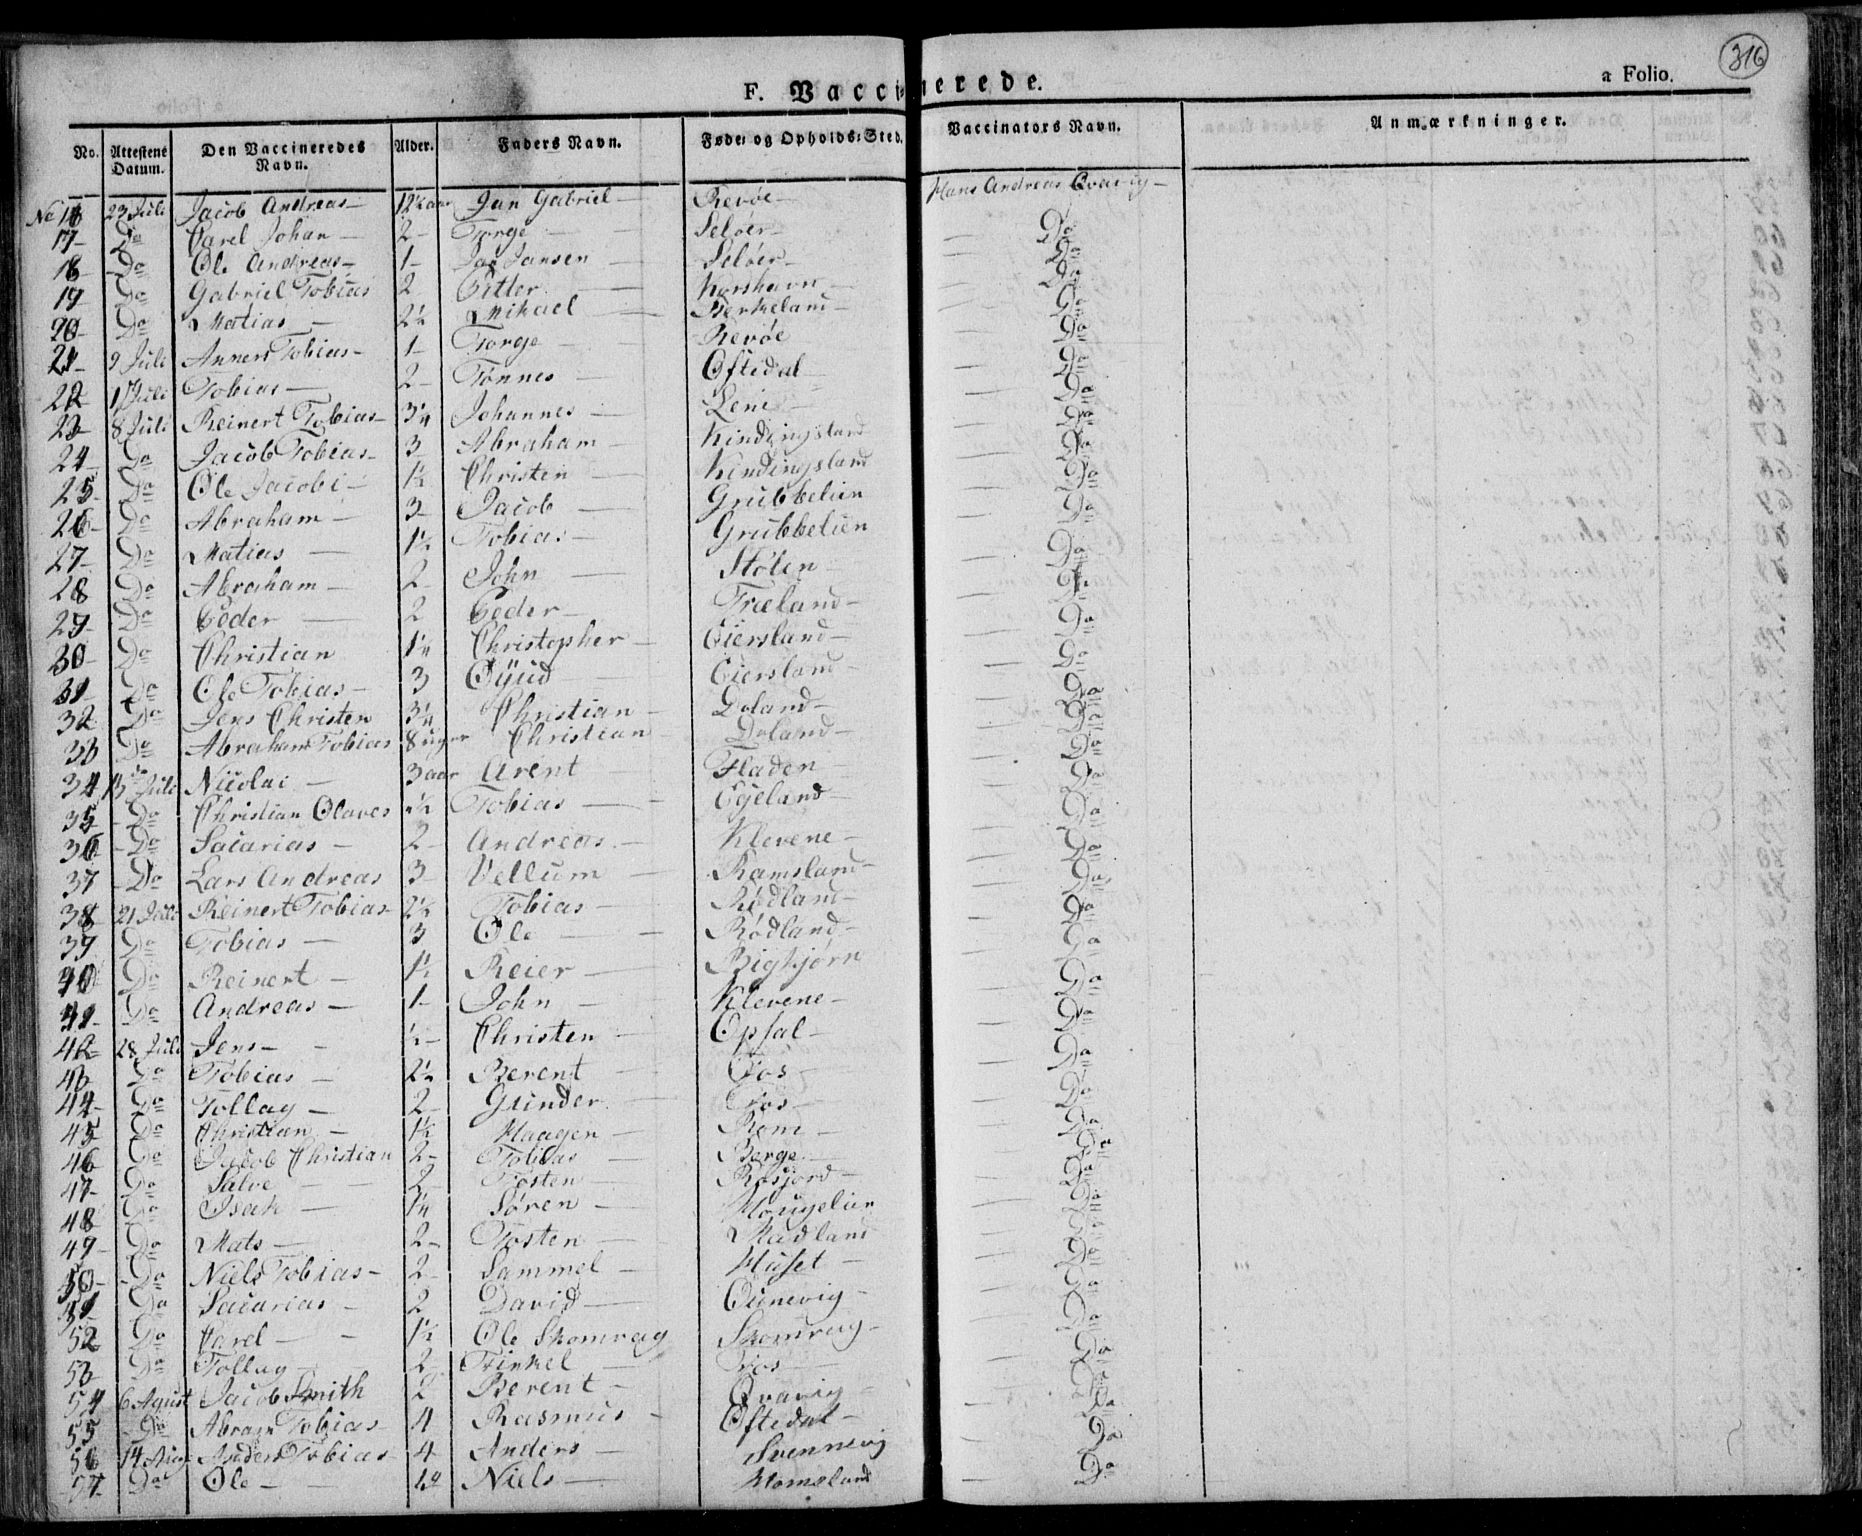 316
F. Vaccinerede.
a Folio.
No. Attestens Datum. Den Vaccineredes Navn. Alder. Faders Navn. Føde- og Opholds-Sted. Vaccinators Navn. Anmærkninger.
No 16 23 Juli Jacob Andreas — 12½ aar Jan Gabriel — Revøe — Hans Andreas Qvavig —
17 — Do Carel Johan — 2 — Torge — Seløer — — Do
18 — Do Ole Andreas — 1 — Jansen — Seløer — — Do
19 — Do Gabriel Tobias 2 Petter — Korshavn — — Do
20 — Do Matias — 2½ Mikael — Berkeland — — Do
21 — 9 Juli Anners Tobias — 1 — Torge — Revøe — Do
22 — Juli Tobias — 2 — Tønnes — Oftedal — Do
23 — 8 Juli Reinert Tobias — 3¼ Johannes — Lene — — Do
24 — Do Jacob Tobias — 3 — Abraham — Kindingsland — Do
25 — Do Ole Jacob — 1½ Christen — Kindingsland — Do
26 — Do Abraham — 3 — Jacob — Grubbelien — Do
27 — Do Matias — 1½ Tobias — Grubbelien — Do
28 Do Abraham — 2 — John — Stølen — — Do
29 — Do Peder — 2 Peder — Træland — — Do
30 — Do Christian 1¼ Christopher — Eiersland — — Do
31 — Do Ole Tobias — 3 — Eiersland — — Do
32 Do Jens Christen 3¼ Christian — Doland — — Do
33 Do Abraham Tobias 8 uger Christian Doland — — Do
34 13 Juli Nicolai — 3 aar Arent — Fladen — — Do
35 — Do Christian Olaves ½ Tobias — Egeland — Do
36 — Do Sacarias — 2 — Andreas — Klevene — — Do
37 — Do Lars Andreas 3 — Vellum — Ramsland — — Do
38 — 21 Juli Reinert Tobias — 2½ Tobias — Rødland — — Do
39 Do Tobias — 3 Ole — Rødland — — Do
40 — Do Reinert — 1½ Reier — Bigkjørn — Do
41 — Do Andreas — 1 — John — Klevene — — Do
42 — 28 Juli Jens — ½ — Christen — Opsal — — Do
43 Do Tobias — 2½ Berent — Fos — — Do
44 — Do Tollag — 2 — Gunder — Fos — — Do
45 — Do Christian — 1½ Haagen — Rom — — Do
46 — Do Jacob Christian 2 — Tobias — Berge — — Do
47 — Do Salve — 2 Tosten — Rosfjord — — Do
48 Do Isak — 1¼ Søren — Hougelien — Do
49 — Do Mats — 2 — Tosten — Madland — Do
50 — Do Niels Tobias — 2 — Sammel — Huset — — Do
51 Do Sacarias — 2 David — — Do
52 Do Carel — 1½ Ole Skomrag Skomrag — — Do
53 — Do Tollag — 2 — Fos — — Do
54 6 Agust Jacob Smith 2 Berent — Qvavig — — Do
55 — Do Abram Tobias — 4 Rasmus — Oftedal — — Do
56 14 Aug Anders Tobias — 4 — Anders — Svennevig — Do
57 — Do Ole — Niels — Homsland — Do